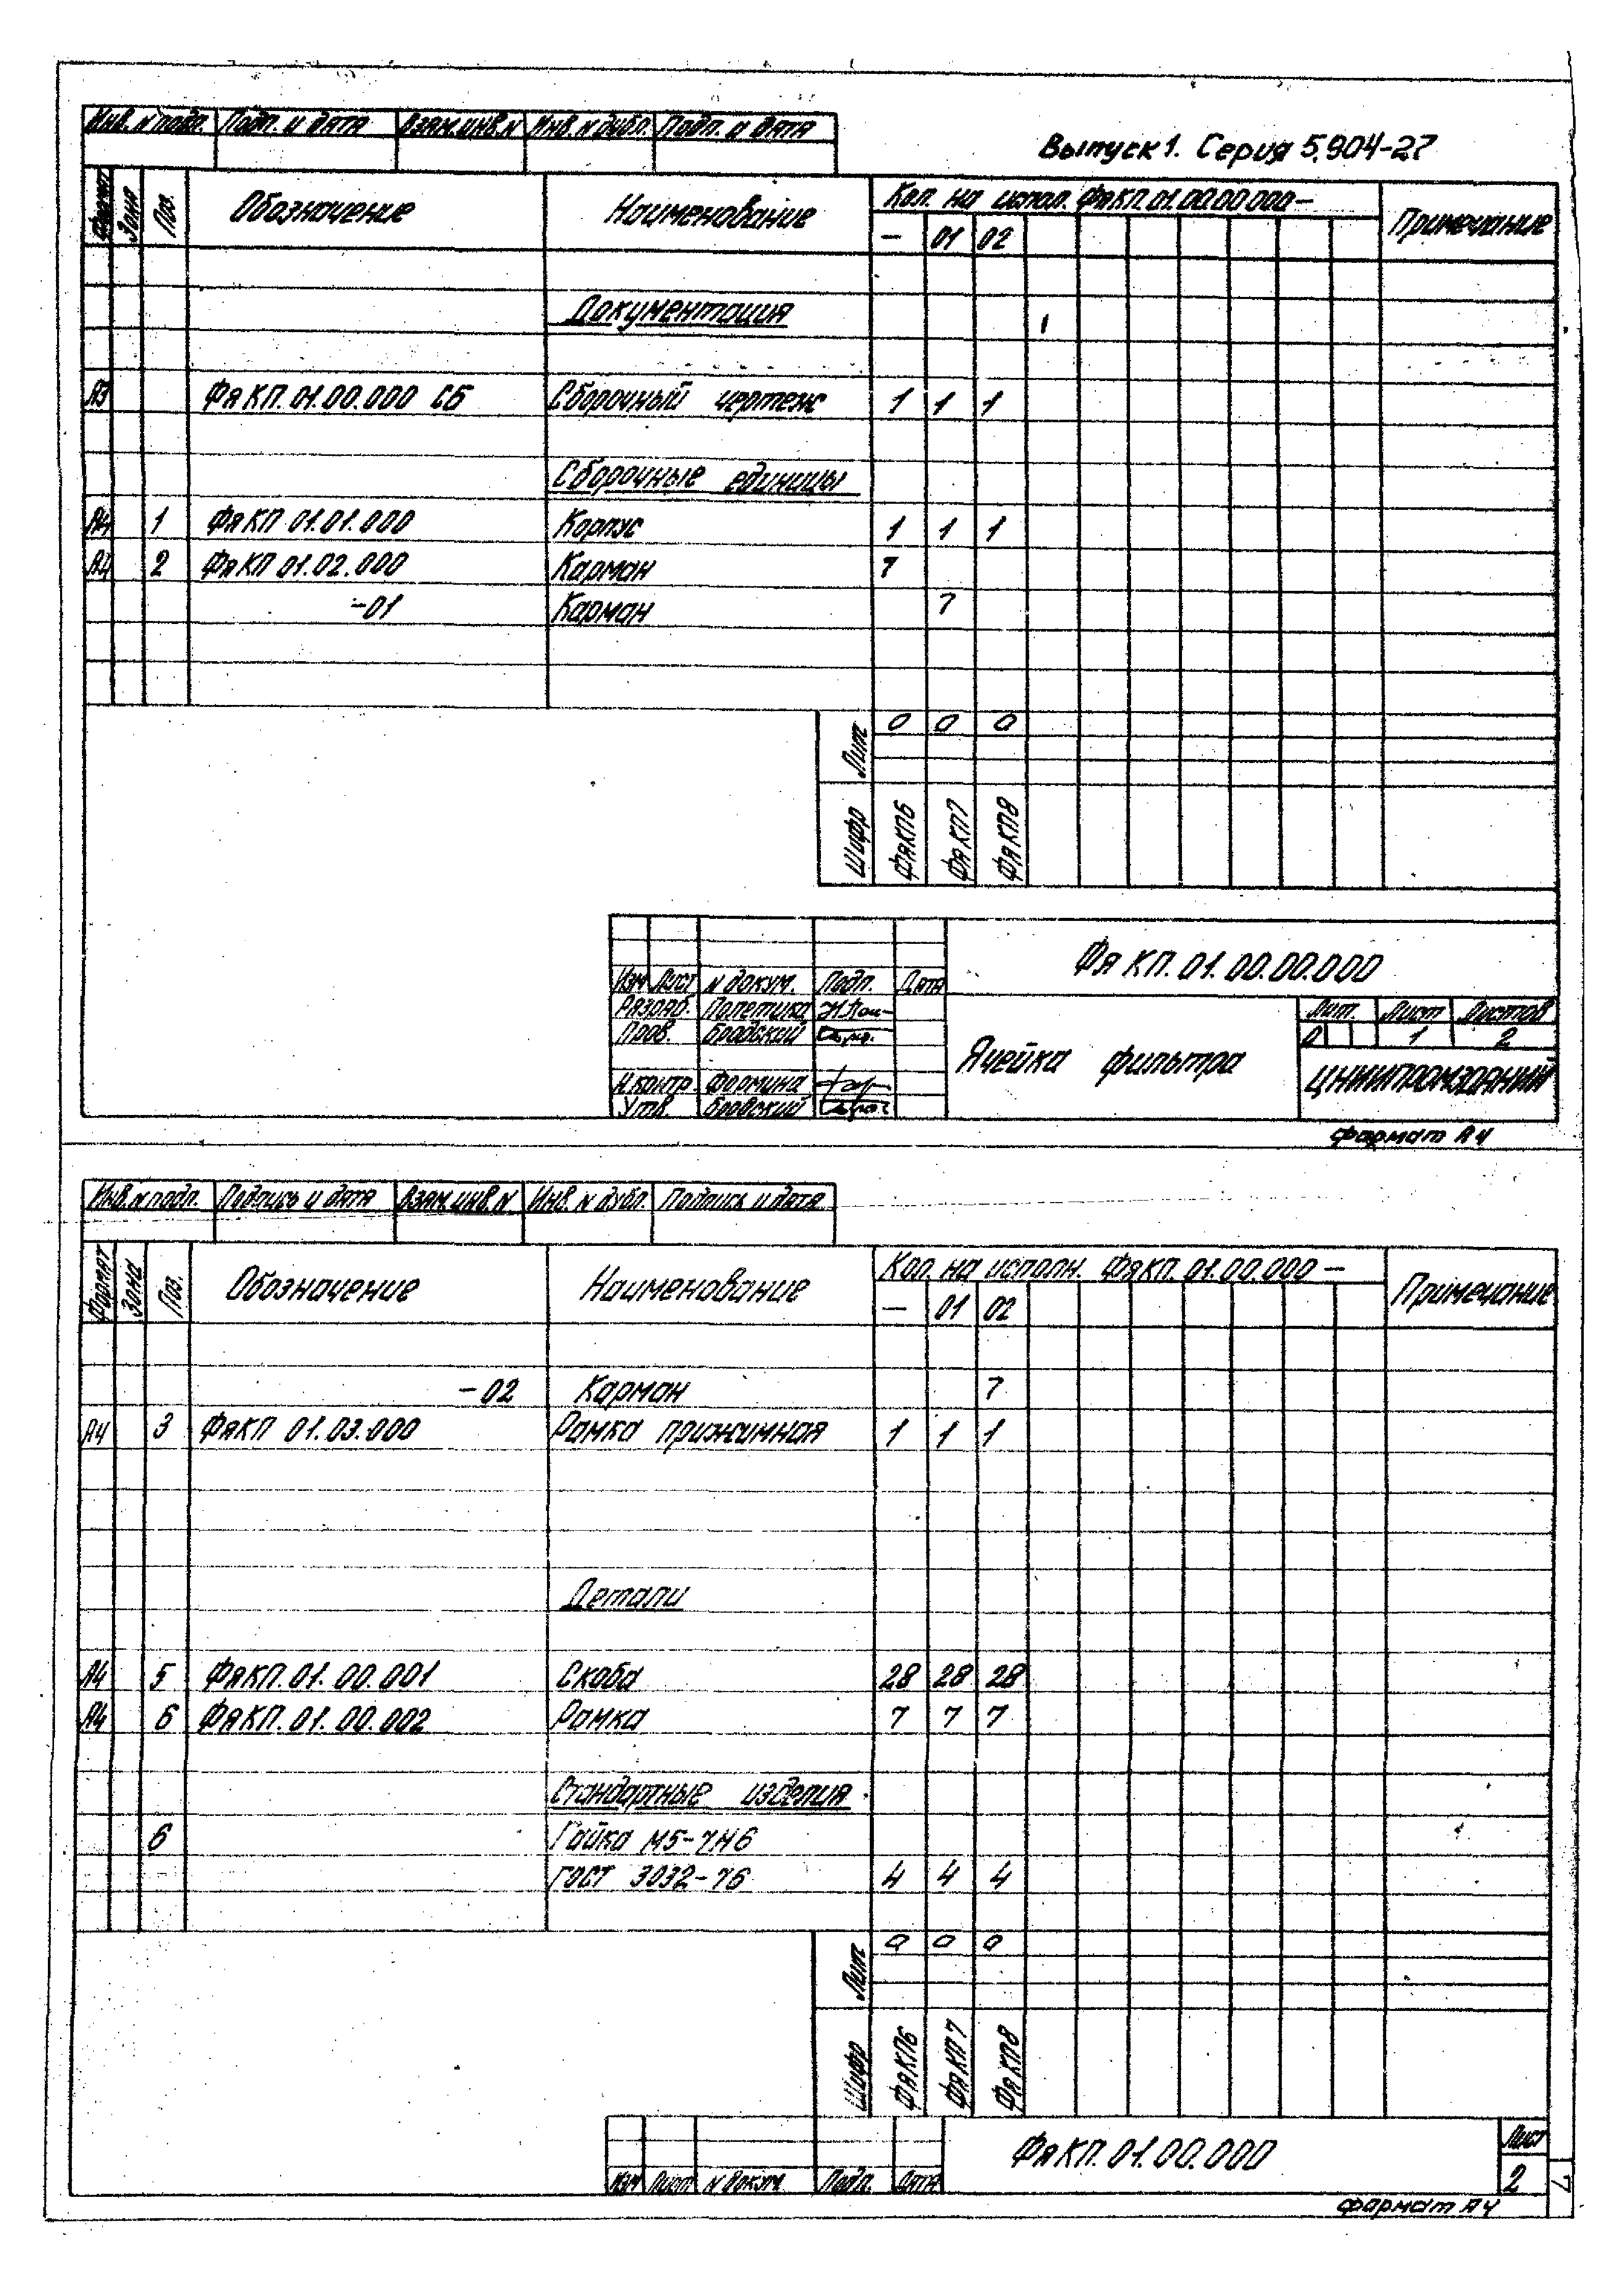 Инв. N подл. Подп. и дата Взам. инв. N Инв. N дубл. Подп. и дата
Выпуск 1. Серия 5.904-27
Формат Зона Поз. Обозначение Наименование Кол. на испол. ФяКП 01.00.00.000 — Примечание
— 01 02
Документация
А3 ФяКП.01.00.000 СБ Сборочный чертеж 1 1 1
Сборочные единицы
А4 1 ФяКП 01.01.000 Корпус 1 1 1
А4 2 ФяКП 01.02.000 Карман 7
-01 Карман 7
Лит 0 0 0
Шифр ФяКП6 ФяКП7 ФяКП8
ФяКП.01.00.00.000
Изм Лист N докум. Подп. Дата
Разраб. Полетика
Пров. Бродский
Н.контр Формина
Утв. Бровский
Ячейка фильтра
Лит. Лист Листов
0 1 2
ЦНИИПРОМЗДАНИЙ
Формат А4
Инв. N подл. Подпись и дата Взам. инв. N Инв. N дубл. Подпись и дата
Формат Зона Поз. Обозначение Наименование Кол. на исполн. ФяКП. 01.00.000 — Примечание
— 01 02
-02 Карман 7
А4 3 ФяКП 01.03.000 Рамка прижимная 1 1 1
Детали
А4 5 ФяКП.01.00.001 Скоба 28 28 28
А4 6 ФяКП.01.00.002 Рамка 7 7 7
Стандартные изделия
6 Гайка М5-7Н6
ГОСТ 3032-76 4 4 4
Лит 0 0 0
Шифр ФяКП6 ФяКП7 ФяКП8
ФяКП.01.00.000
Лист
2
Изм Лист N докум. Подп. Дата
7
Формат А4